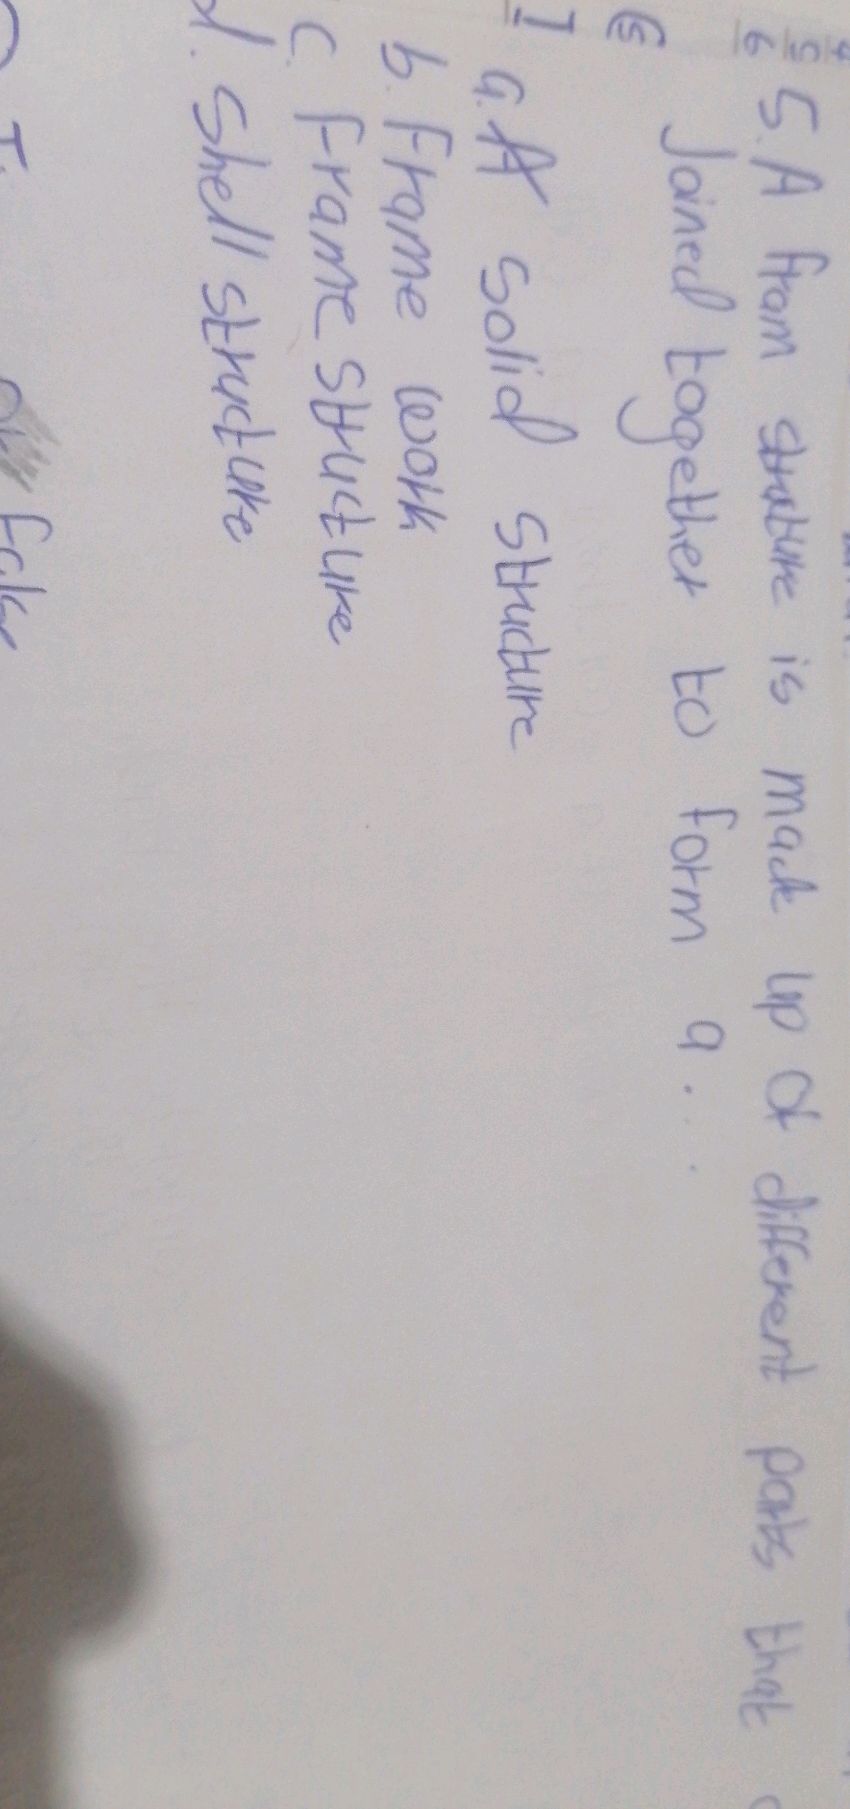 5. A fram struture is made up of different parts that
Joined together to form a...
a. A solid structure
b. Frame work
c. Frame structure
d. Shell structure
False